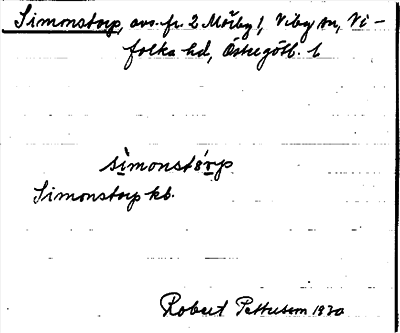 Simonstorp, avs. fr. 2 Mörby 1, Viby sn, Vi-
folka hd, Östergötl. l.
simonstörp
Simonstorp kb.
Robert Pettersson 1930